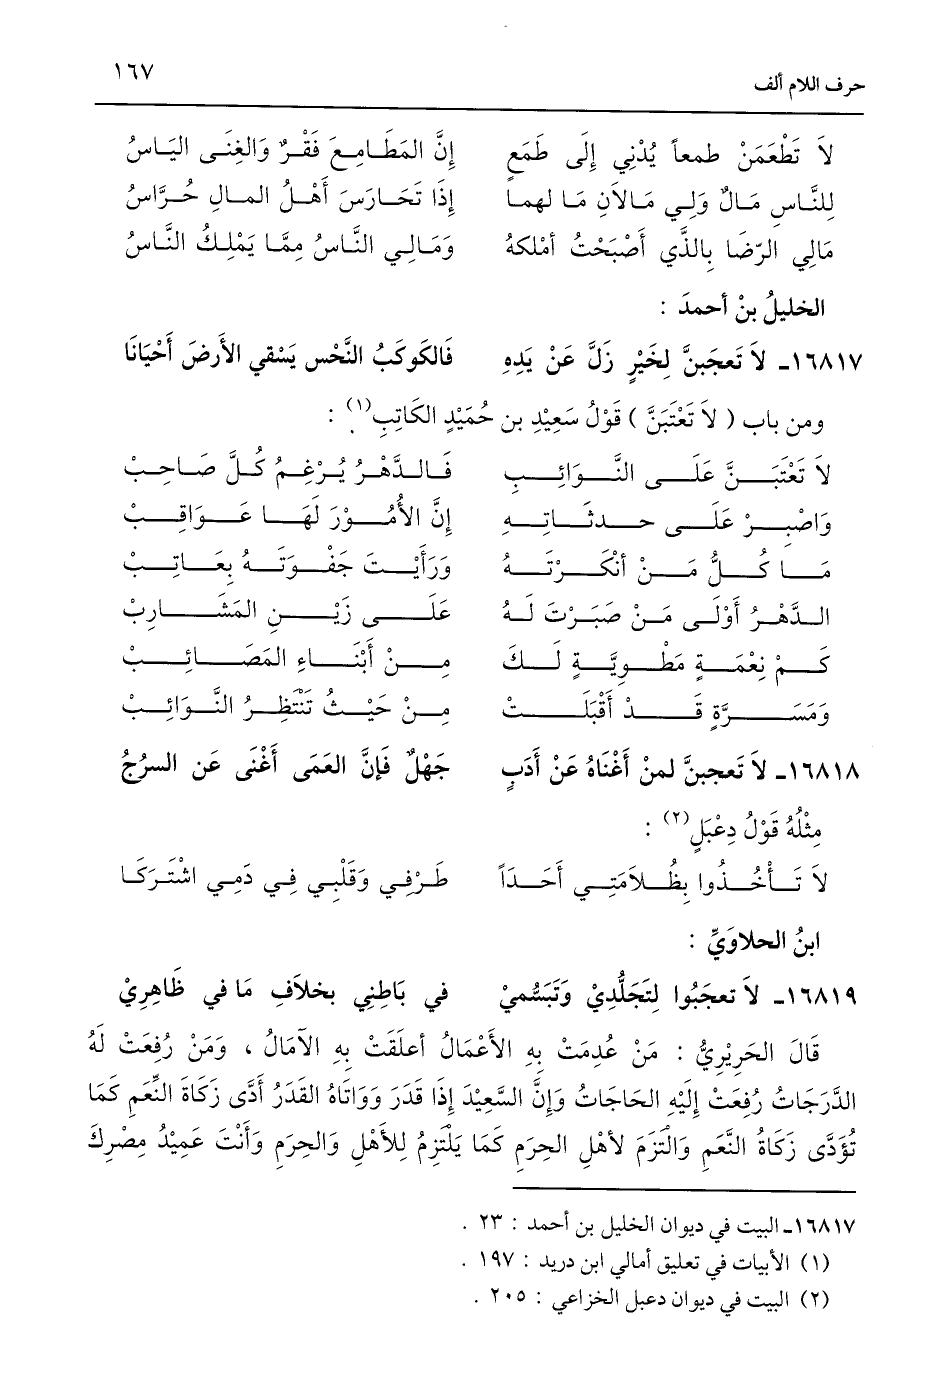 حرف اللام ألف ١٦٧
لاَ تَطْعَمَنْ طمعاً يُدْنِي إلَى طَمَعٍ إنَّ المَطَامِعَ فَقْرٌ وَالغِنَى اليَاسُ
لِلنَّاسِ مَالٌ وَلِي مَالاَنِ مَا لهما إذَا تَحَارَسَ أَهْلُ المالِ حُرَّاسُ
مَالِي الرّضَا بِالَّذي أَصْبَحْتُ أمْلكهُ وَمَالِي النَّاسُ مِمَّا يَمْلِكُ النَّاسُ
الخليلُ بنْ أحمدَ :
١٦٨١٧ـ لاَ تَعجَبنَّ لِخَيْرٍ زَلَّ عَنْ يَدِهِ فَالكَوكَبُ النَّحْسِ يَسْقي الأَرضَ أَحْيَانَا
ومن باب ( لاَ تَعْتَبَنَّ ) قَوْلُ سَعِيْدِ بن حُمَيْدٍ الكَاتِبِ(١) :
لاَ تَعْتَبَنَّ عَلَى النَّوَائِبِ فَالدَّهْرُ يُرْغِمُ كُلَّ صَاحِبْ
وَاصْبِرْ عَلَى حدثَاتِهِ إنَّ الأُمُوْرَ لَهَا عَوَاقِبْ
مَا كُلُّ مَنْ أنْكَرْتَهُ وَرَأَيْتَ جَفْوَتَهُ بِعَاتِبْ
الدَّهْرُ أوْلَى مَنْ صَبَرْتَ لَهُ عَلَى زَيْنِ المَشَارِبْ
كَمْ نِعْمَةٍ مَطْوِيَّةٍ لَكَ مِنْ أبْنَاءِ المَصَائِبْ
وَمَسَرَّةٍ قَدْ أقْبَلَتْ مِنْ حَيْثُ تَنْتَظِرُ النَّوَائِبْ
١٦٨١٨ـ لاَ تَعجبنَّ لمنْ أغْنَاهُ عَنْ أدَبٍ جَهْلٌ فَإنَّ العَمَى أَغْنَى عَن السرُجُ
مِثْلُهُ قَوْلُ دِعْبَلٍ(٢) :
لاَ تَأْخُذُوا بِظُلاَمَتِي أحَدَاً طَرْفِي وَقَلْبِي فِي دَمِي اشْتَرَكَا
ابنُ الحلاوَيِّ :
١٦٨١٩ـ لاَ تعجَبُوا لِتَجَلُّدِيْ وَتَبَسُّمِيْ في بَاطِنِي بخلاَفِ مَا في ظَاهِرِيْ
قَالَ الحَرِيْرِيُّ : مَنْ عُدِمَتْ بِهِ الأَعْمَالُ أعلَقَتْ بِهِ الآمَالُ ، وَمَنْ رُفِعَتْ لَهُ
الدَّرَجَاتُ رُفِعَتْ إلَيْهِ الحَاجَاتُ وَإنَّ السَّعِيْدَ إذَا قَدَرَ وَوَاتَاهُ القَدَرُ أدَّى زَكَاةَ النِّعَمِ كَمَا
تُؤَدَّى زَكَاةُ النَّعَمِ وَالْتَزَمَ لأهْلِ الحِرَمِ كَمَا يَلْتَزِمُ لِلأهْلِ وَالحِرَمِ وَأنْتَ عَمِيْدُ مِصْرِكَ
١٦٨١٧ـ البيت في ديوان الخليل بن أحمد : ٢٣ .
(١) الأبيات في تعليق أمالي ابن دريد : ١٩٧ .
(٢) البيت في ديوان دعبل الخزاعي : ٢٠٥ .